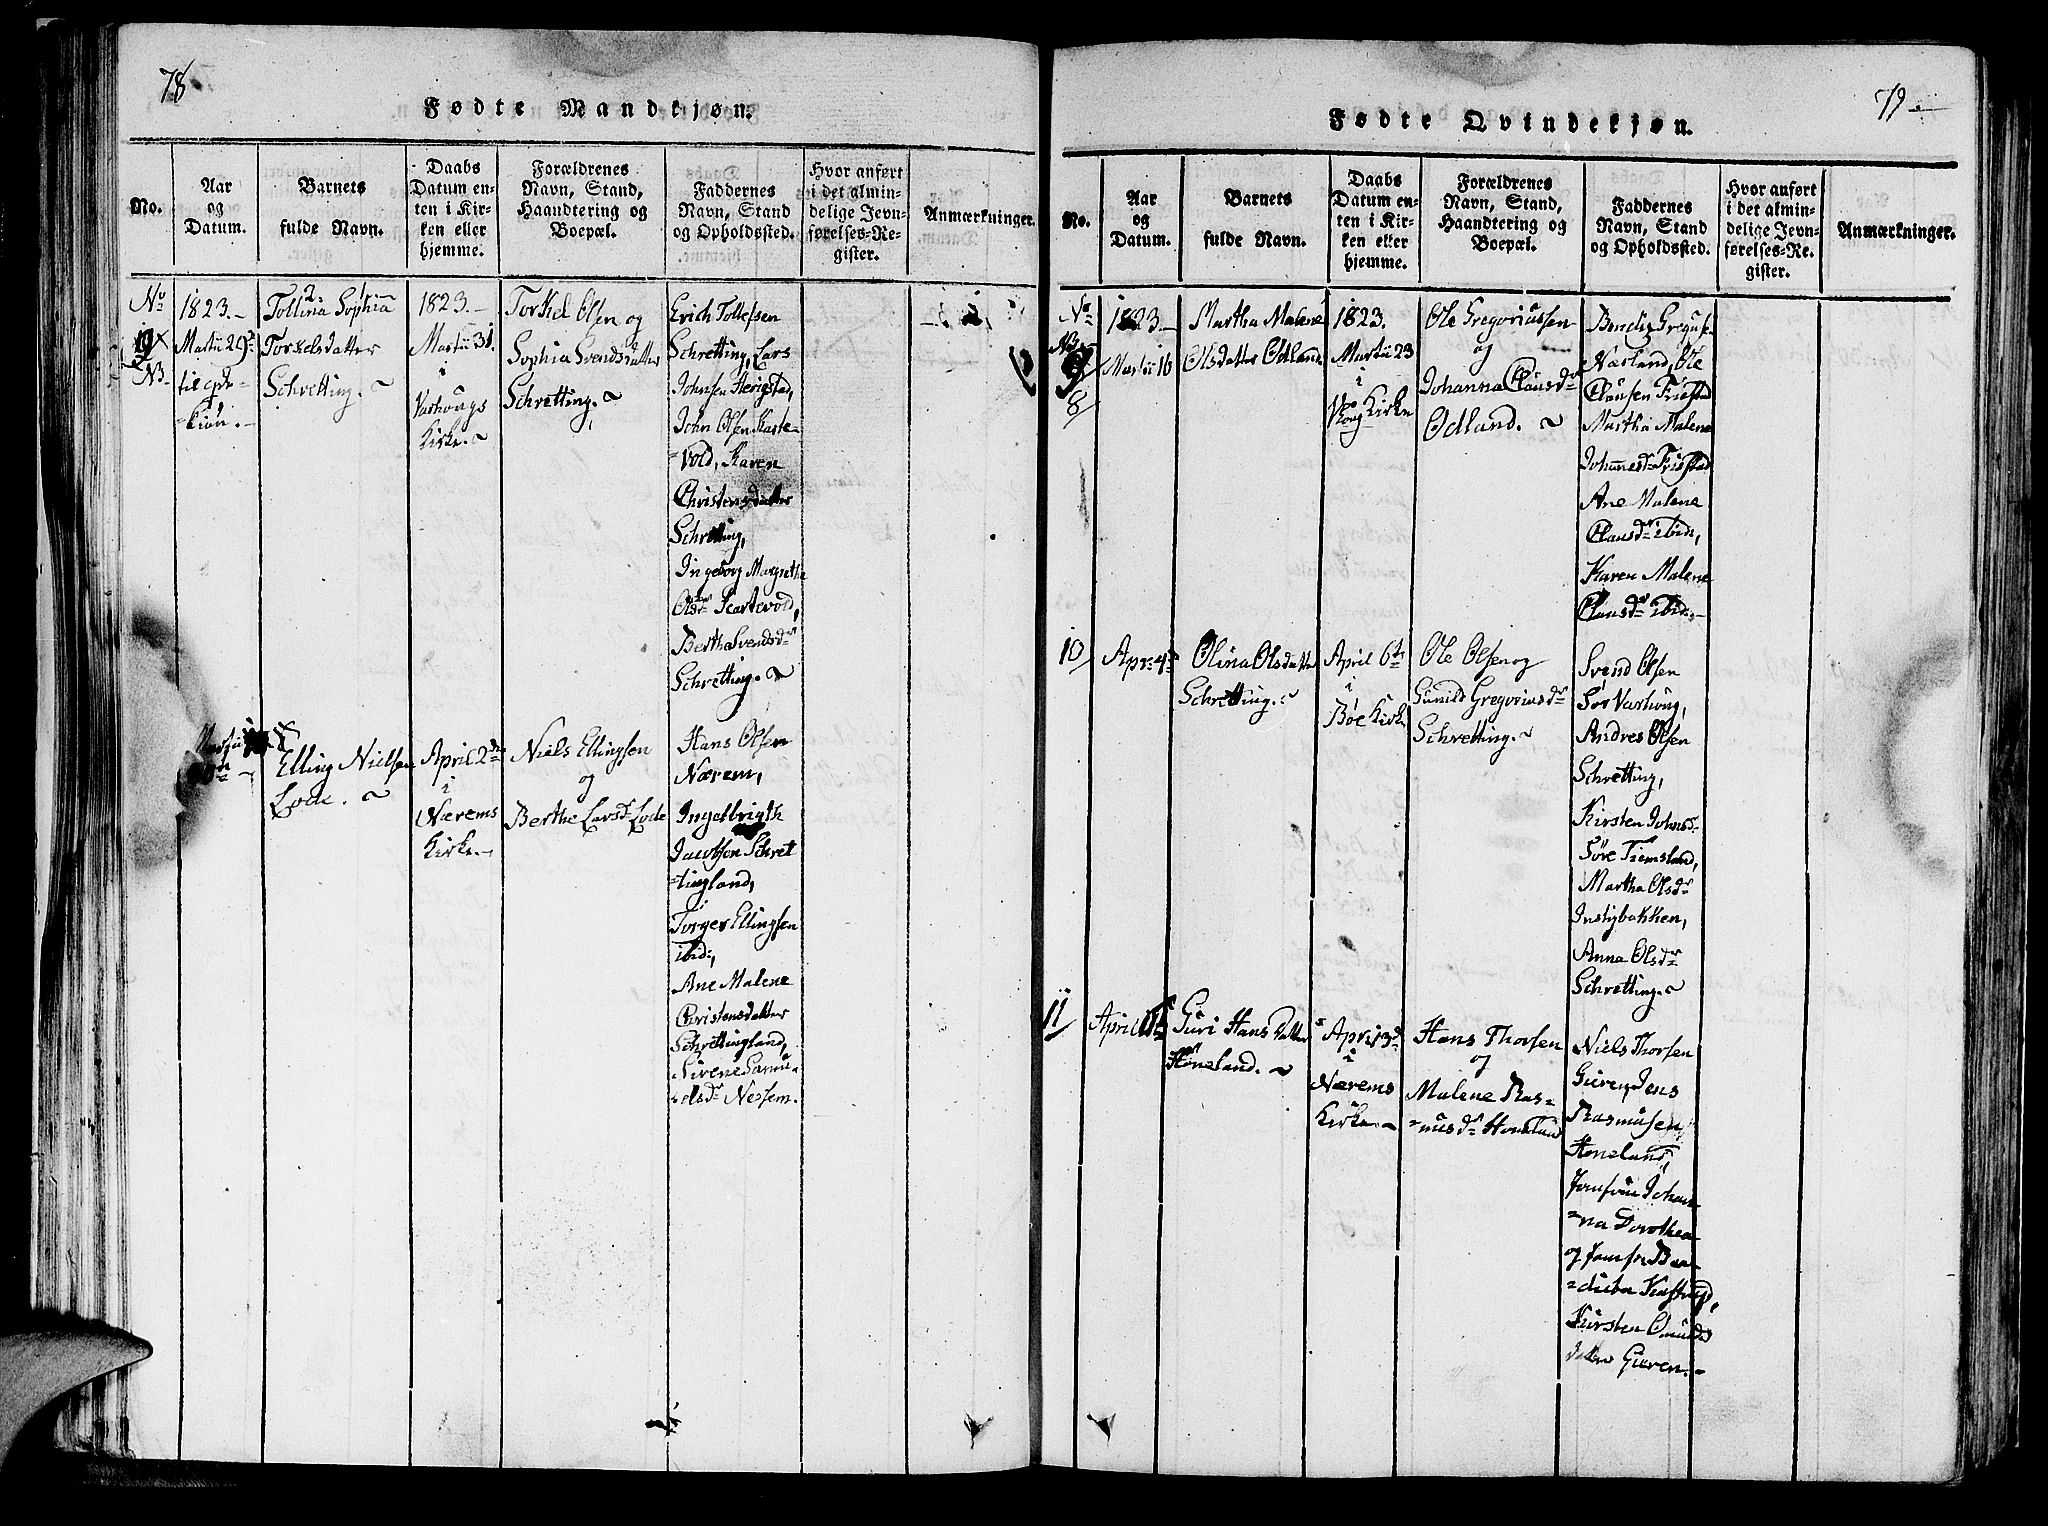 78
Fødte Mandkjøn.
No.
Aar
og
Datum.
Barnets
fulde Navn.
Daabs
Datum en-
ten i Kir-
ken eller
hjemme.
Forældrenes
Navn, Stand,
Haandtering og
Boepæl.
Faddernes
Navn, Stand
og Opholdssted.
Hvor anført
i det almin-
delige Jevn-
førelses-Re-
gister.
Anmærkninger.
No
19
NB
1823.-
Martii 29de
til qvin-
kiøn.-
Tollina Sophia
Torkelsdatter
Schretting.
1823.-
Martii 31
i
Varhougs
Kirke.
Torkel Olsen og
Sophia Svendsdatter
Schretting.
Erich Tollefsen
Schretting, Lars
Johnsen Herigstad,
John Olsen Karte-
=vold, Karen
Christensdatter
Schretting,
Ingeborg Margrethe
Olsdr Kartevold,
Bertha Svendsdr
Schretting.
Martii
Elling Nielsen
Lode.
April 2den
i
Nærems
Kirke.-
Niels Ellingsen
og
Berthe Larsdr Lode
Hans Olsen
Nærem,
Ingelbrigth
Jacobsen Schret
=tingland,
Torger Ellingsen
ibid:,
Ane Malene
Christensdatter
Schrettingland,
Sirene Samu-
elsdr Nessem.
79
Fødte Qvindekjøn.
No.
Aar
og
Datum.
Barnets
fulde Navn.
Daabs
Datum en-
ten i Kir-
ken eller
hjemme.
Forældrenes
Navn, Stand,
Haandtering og
Boepæl.
Faddernes
Navn, Stand
og Opholdssted.
Hvor anført
i det almin-
delige Jevn-
førelses-Re-
gister.
Anmærkninger.
No
NB
9
8
1823.-
Martii 16
Martha Malene
Olsdatter Odland
1823.
Martii 23
i
Kirke
Ole Gregoriussen
og
Johanna Clausdr
Odland.
Bendix Gregus.
Næsland, Ole
Clausen Fristad
Martha Malene
Johannesdr Fristad
Ane Malene
Clausdr ibid:,
Karen Malene
Clausdr ibid:-
10
Apr: 4de
Olina Olsdatter
Schretting.
April 6te
i
Bøe Kirke
Ole Olsen og
Gunild Gregoriusdr
Schretting.
Svend Olsen
Sør Varhoug,
Andres Olsen
Schretting,
Kirsten Johnsdr
Søre Tiemsland,
Martha Olsdr
Instybakken,
Anna Olsdr
Schretting.
11
April
Guri Hans Datter
Høneland.
April 13de
i
Nærems
Kirke.
Hans Thorsen
og
Malene Ras=
=musdr Høneland
Niels Thorsen
Gueren, Jens
Rasmusen
Høneland,
Jomfrue Johan-
=na Dorothea
og Jomfr: Bene-
=dicta Kastrup,
Kirsten Omunds
datter Gueren.-